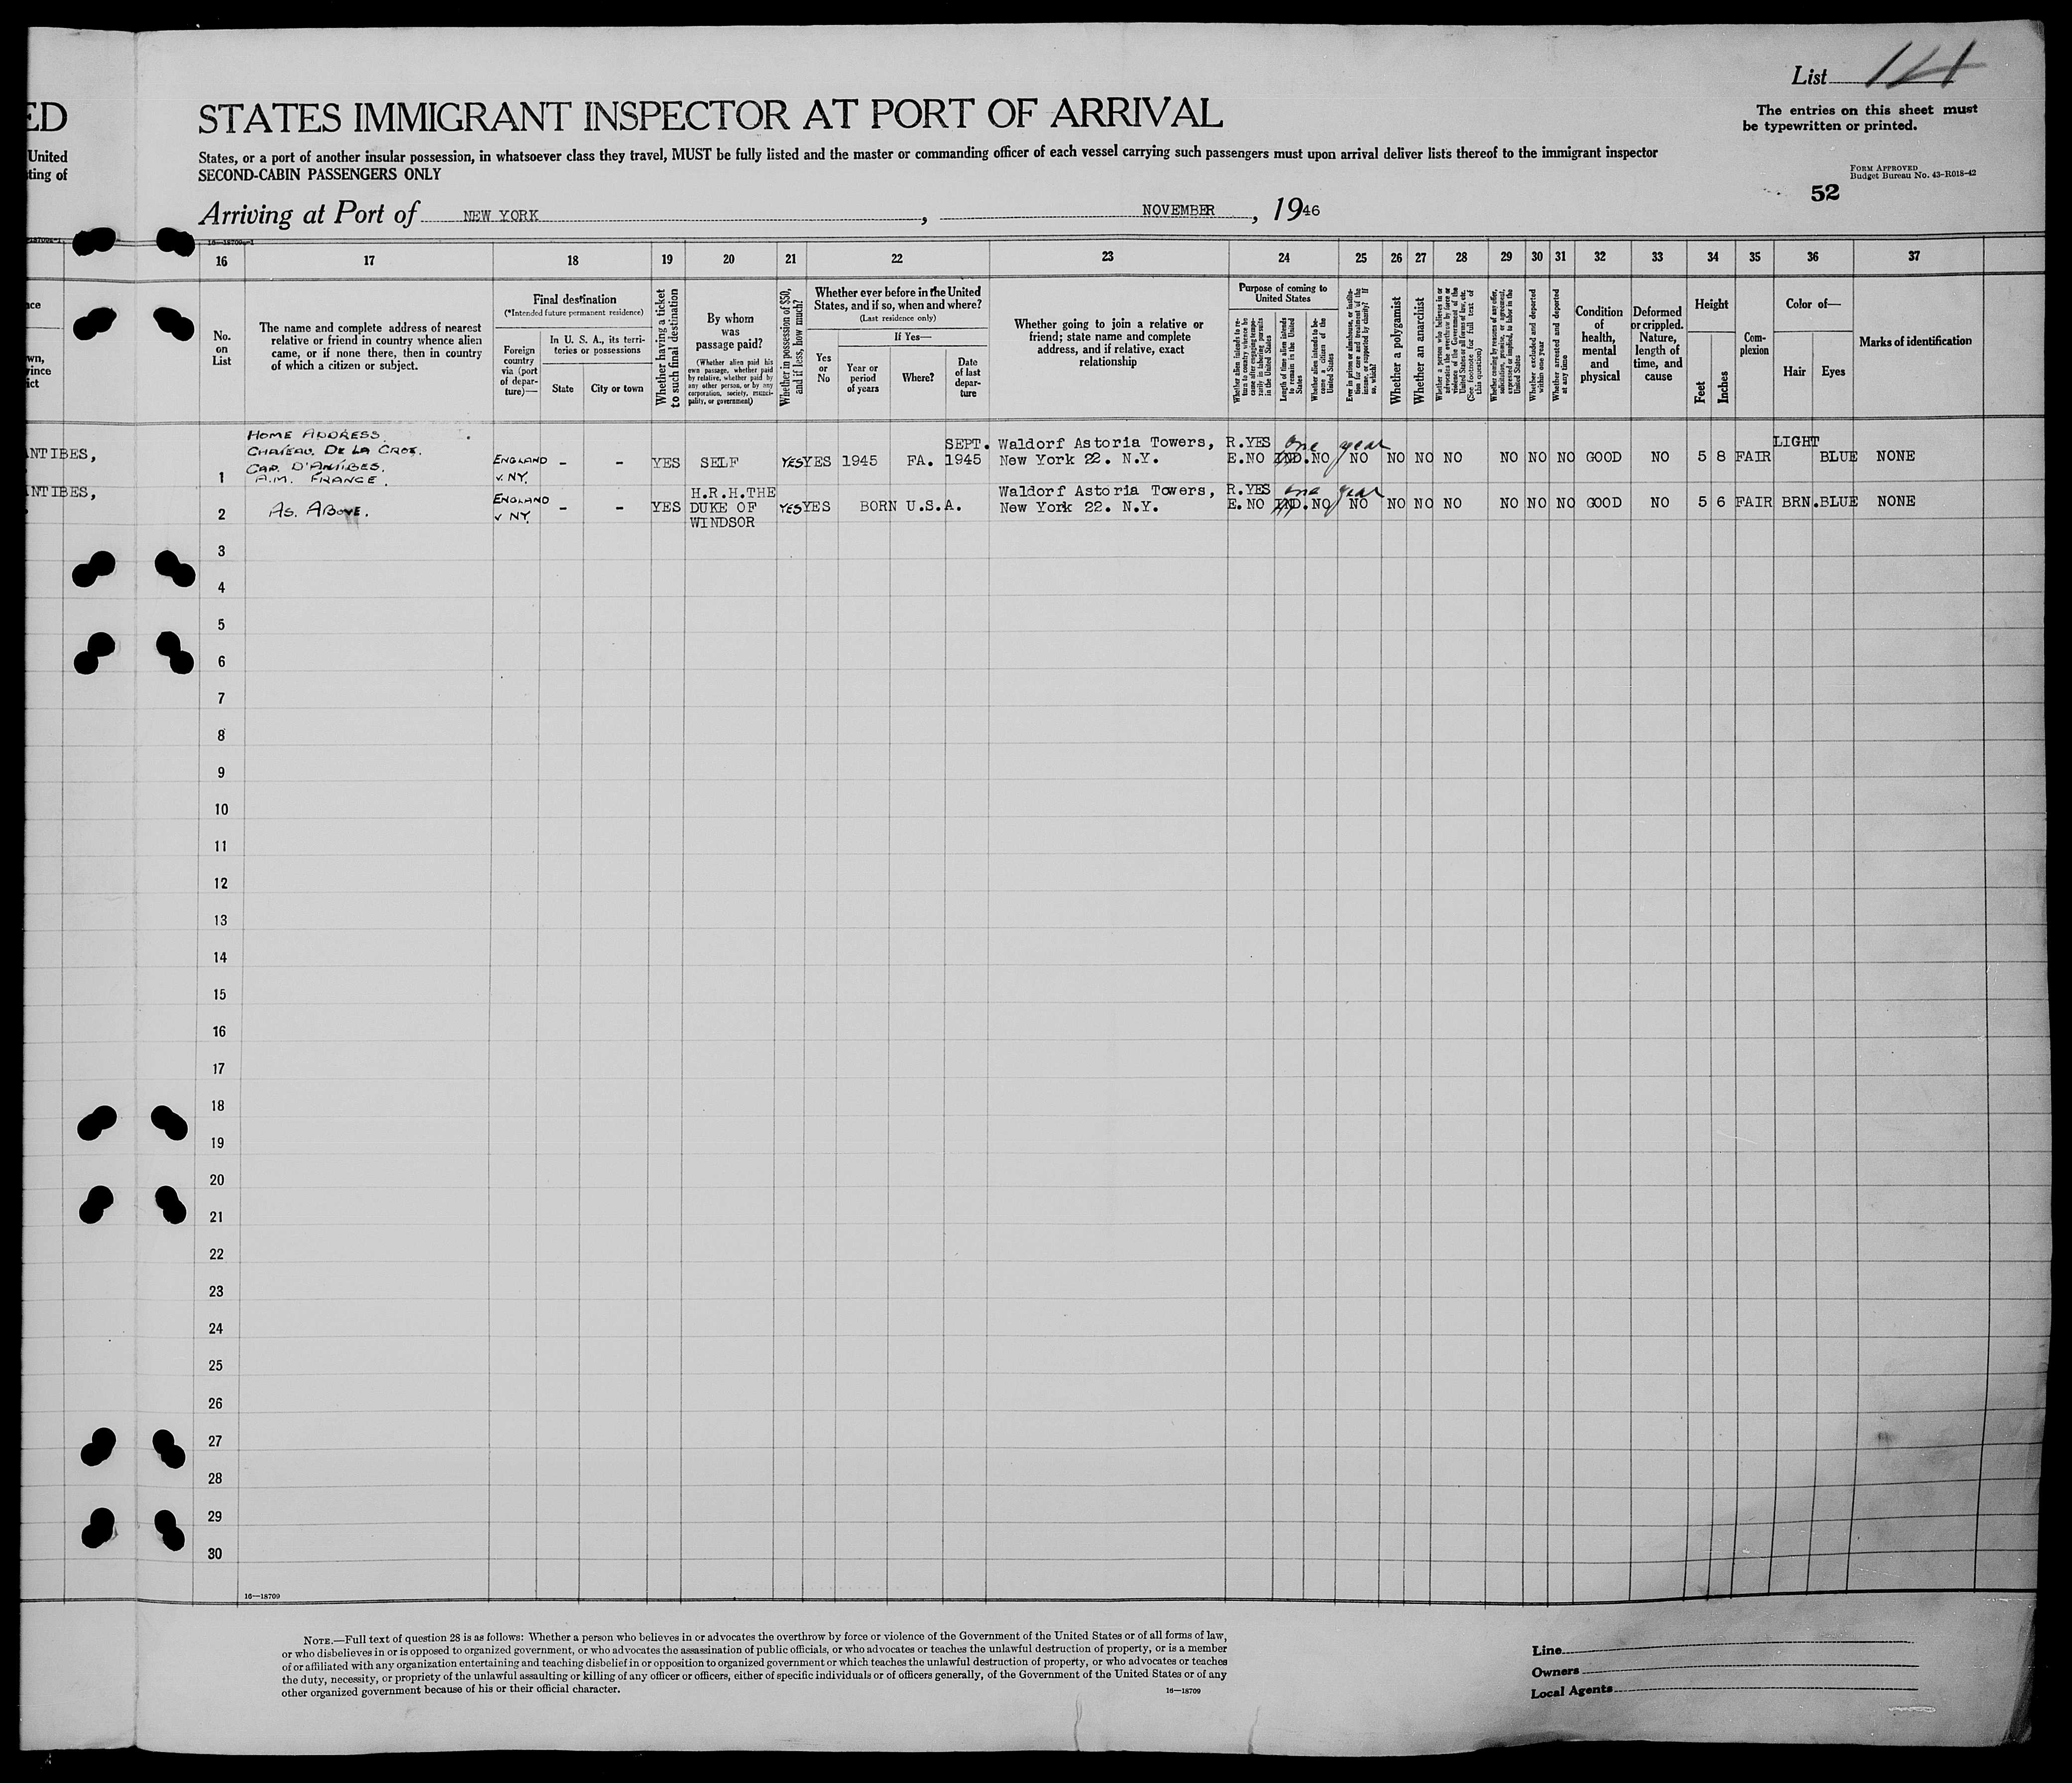 List 14
ED
STATES IMMIGRANT INSPECTOR AT PORT OF ARRIVAL
The entries on this sheet must
be typewritten or printed.
United
ting of
States, or a port of another insular possession, in whatsoever class they travel, MUST be fully listed and the master or commanding officer of each vessel carrying such passengers must upon arrival deliver lists thereof to the immigrant inspector
SECOND-CABIN PASSENGERS ONLY
FORM APPROVED
Budget Bureau No. 43-R018-42
52
Arriving at Port of NEW YORK , NOVEMBER , 1946
16—18709-1
16 17 18 19 20 21 22 23 24 25 26 27 28 29 30 31 32 33 34 35 36 37
No.
on
List
The name and complete address of nearest
relative or friend in country whence alien
came, or if none there, then in country
of which a citizen or subject.
Final destination
(*Intended future permanent residence)
Foreign
country
via (port
of depar-
ture)—
In U. S. A., its terri-
tories or possessions
State
City or town
Whether having a ticket
to such final destination
By whom
was
passage paid?
(Whether alien paid his
own passage, whether paid
by relative, whether paid by
any other person, or by any
corporation, society, munici-
pality, or government)
Whether in possession of $50,
and if less, how much?
Whether ever before in the United
States, and if so, when and where?
(Last residence only)
Yes
or
No
If Yes—
Year or
period
of years
Where?
Date
of last
depar-
ture
Whether going to join a relative or
friend; state name and complete
address, and if relative, exact
relationship
Purpose of coming to
United States
Whether alien intends to re-
turn to country whence he
came after engaging tempo-
rarily in laboring pursuits
in the United States
Length of time alien intends
to remain in the United
States
Whether alien intends to be-
come a citizen of the
United States
Ever in prison or almshouse, or institu-
tion for care and treatment of the
insane, or supported by charity? If
so, which?
Whether a polygamist
Whether an anarchist
Whether a person who believes in or
advocates the overthrow by force or
violence of the Government of the
United States or all forms of law, etc.
(See footnote for full text of
this question)
Whether coming by reasons of any offer,
solicitation, promise, or agreement,
expressed or implied, to labor in the
United States
Whether excluded and deported
within one year
Whether arrested and deported
at any time
Condition
of
health,
mental
and
physical
Deformed
or crippled.
Nature,
length of
time, and
cause
Height
Feet
Inches
Com-
plexion
Color of—
Hair
Eyes
Marks of identification
NTIBES,
1 HOME ADDRESS.
CHATEAU. DE LA CROE.
CAP. D'ANTIBES.
A.M. FRANCE.
ENGLAND
v. NY.
– – YES SELF YES YES 1945 FA. SEPT.
1945
Waldorf Astoria Towers,
New York 22. N.Y.
R.YES
E.NO IND. one year NO NO NO NO NO NO NO NO GOOD NO 5 8 FAIR LIGHT BLUE NONE
NTIBES,
2 AS. ABOVE.
ENGLAND
v NY.
– – YES H.R.H.THE
DUKE OF
WINDSOR
YES YES BORN U.S.A.
Waldorf Astoria Towers,
New York 22. N.Y.
R.YES
E.NO IND. one year NO NO NO NO NO NO NO NO GOOD NO 5 6 FAIR BRN. BLUE NONE
3
4
5
6
7
8
9
10
11
12
13
14
15
16
17
18
19
20
21
22
23
24
25
26
27
28
29
30
16—18709
NOTE.—Full text of question 28 is as follows: Whether a person who believes in or advocates the overthrow by force or violence of the Government of the United States or of all forms of law,
or who disbelieves in or is opposed to organized government, or who advocates the assassination of public officials, or who advocates or teaches the unlawful destruction of property, or is a member
of or affiliated with any organization entertaining and teaching disbelief in or opposition to organized government or which teaches the unlawful destruction of property, or who advocates or teaches
the duty, necessity, or propriety of the unlawful assaulting or killing of any officer or officers, either of specific individuals or of officers generally, of the Government of the United States or of any
other organized government because of his or their official character.
16—18709
Line
Owners
Local Agents